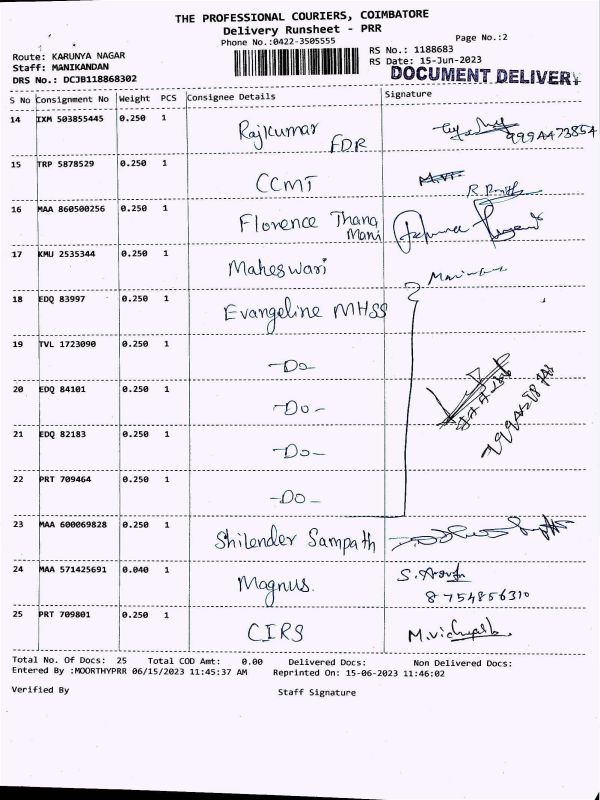 THE PROFESSIONAL COURIERS, COIMBATORE
Delivery Runsheet - PRR
Phone No.:0422-3505555
Page No.:2
Route: KARUNYA NAGAR
Staff: MANIKANDAN
DRS No.: DCJB118868302
RS No.: 1188683
RS Date: 15-Jun-2023
DOCUMENT DELIVERY
S No Consignment No Weight PCS Consignee Details Signature
14 IXM 503855445 0.250 1 Rajkumar FDR
15 TRP 5878529 0.250 1 CCMT
16 MAA 860500256 0.250 1 Florence Thang Mani
17 KMU 2535344 0.250 1 Maheswari
18 EDQ 83997 0.250 1 Evangeline MHSS
19 TVL 1723090 0.250 1 -Do-
20 EDQ 84101 0.250 1 -Do-
21 EDQ 82183 0.250 1 -Do-
22 PRT 709464 0.250 1 -Do-
23 MAA 600069828 0.250 1 Shilender Sampath
24 MAA 571425691 0.040 1 Magnus. S.
8754856310
25 PRT 709801 0.250 1 CIRS
Total No. Of Docs: 25 Total COD Amt: 0.00 Delivered Docs: Non Delivered Docs:
Entered By :MOORTHYPRR 06/15/2023 11:45:37 AM Reprinted On: 15-06-2023 11:46:02
Verified By Staff Signature